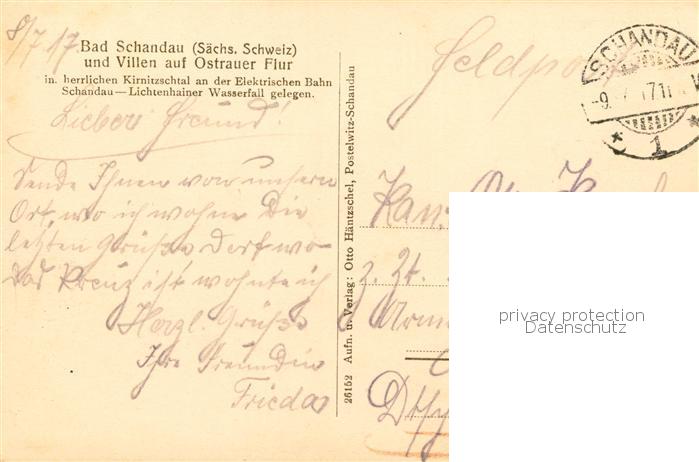 8/7 17
Bad Schandau (Sächs. Schweiz)
und Villen auf Ostrauer Flur
in herrlichen Kirnitzschtal an der Elektrischen Bahn
Schandau—Lichtenhainer Wasserfall gelegen.
Lieber Freund!
Sende Ihnen von unsern
Ort, wo ich wohne die
letzten Grüße Dort wo
das Kreuz ist wohnte ich
Herzl. Grüße
Ihre Freundin
Frieda
26152 Aufn. u. Verlag: Otto Häntzschel, Postelwitz-Schandau
Feldpost
SCHANDAU
1
z. Zt.
privacy protection
Datenschutz